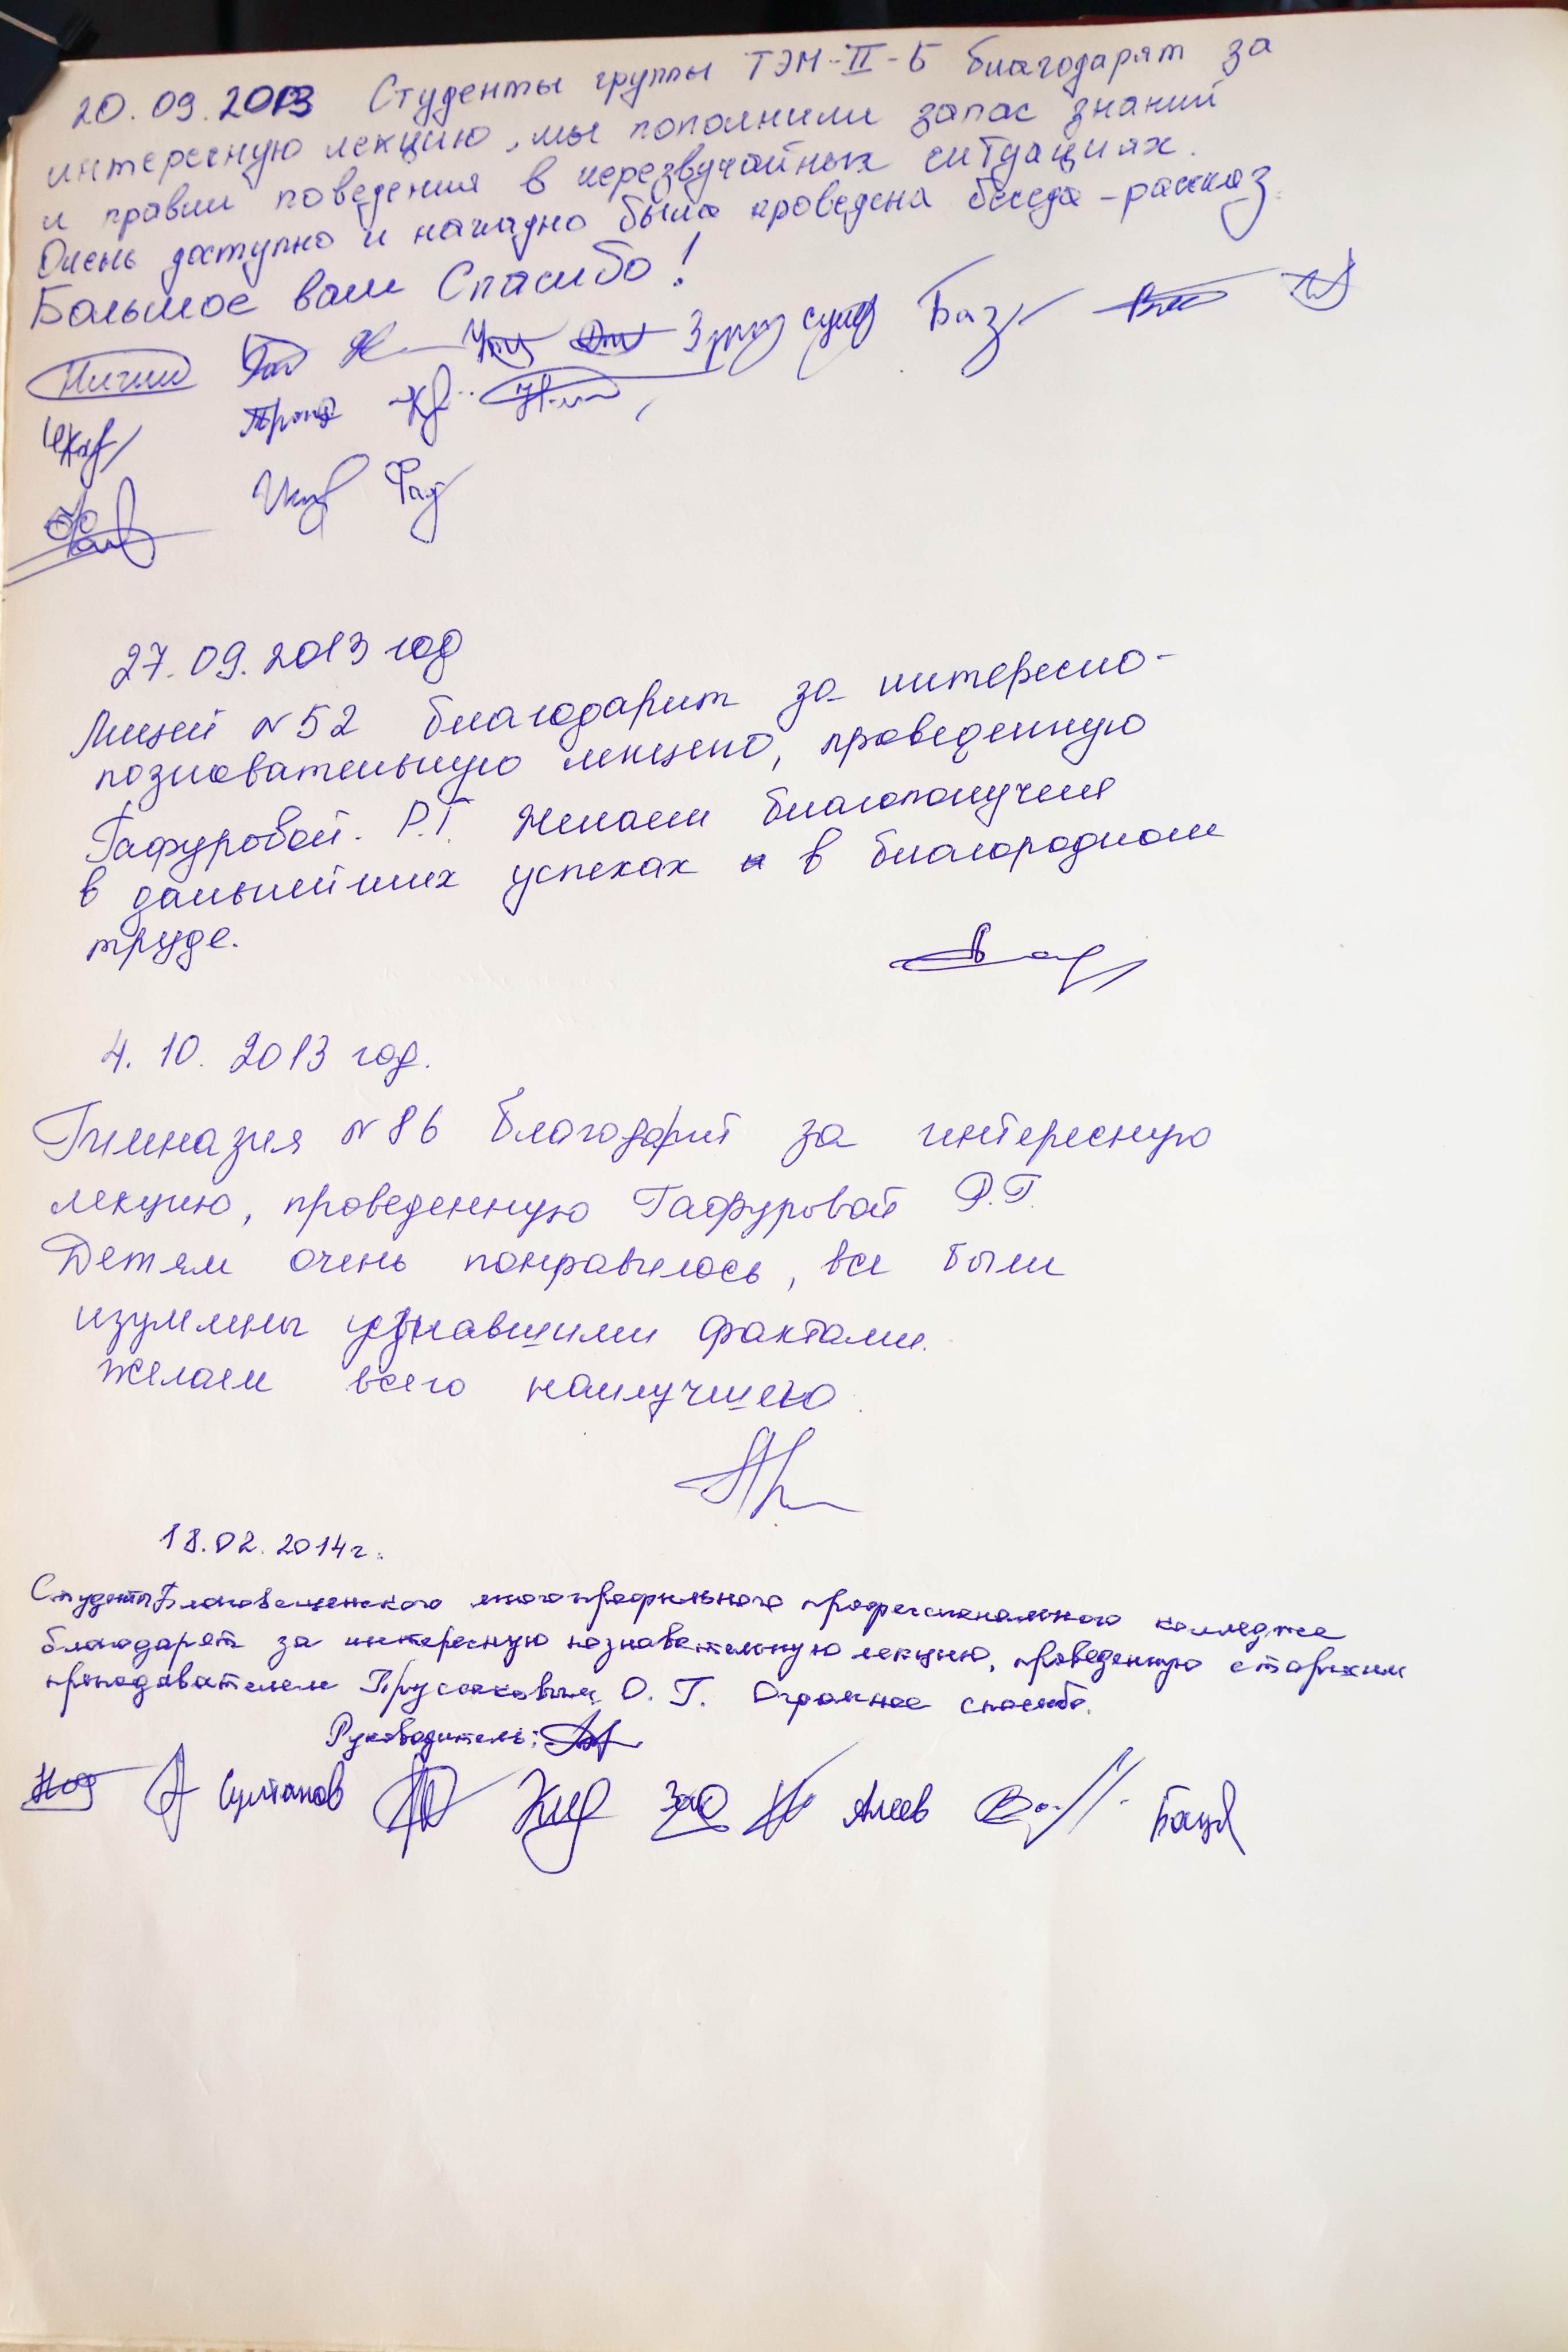 20.09.2013 Студенты группы ТЭМ-II-Б благодарят за
интересную лекцию, мы пополнили запас знаний
и правил поведения в черезвучайных ситуациях.
Очень доступно и наглядно была проведена беседа-рассказ.
Большое вам Спасибо!
27.09.2013 год
Лицей №52 благодарит за интересно-
познавательную лекцию, проведенную
Гафуровой. Р.Г. Желаем благополучия
в дальнейших успехах и в благородном
труде.
4. 10. 2013 год.
Гимназия №86 благодарит за интересную
лекцию, проведенную Гафуровой Р.Г.
Детям очень понравилось, все были
изумлены узнавшими фактами.
Желаем всего наилучшего.
18.02.2014г.
Студенты Благовещенского многопрофильного профессионального колледжа
благодарят за интересную познавательную лекцию, проведенную старшим
преподавателем Пруссаковым О. Г. Огромное спасибо.
Руководитель:
Султанов Алеев